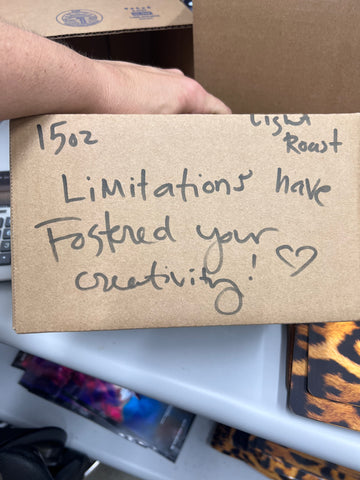 15oz
Light
Roast
Limitations have
Fostered your
creativity! ♡